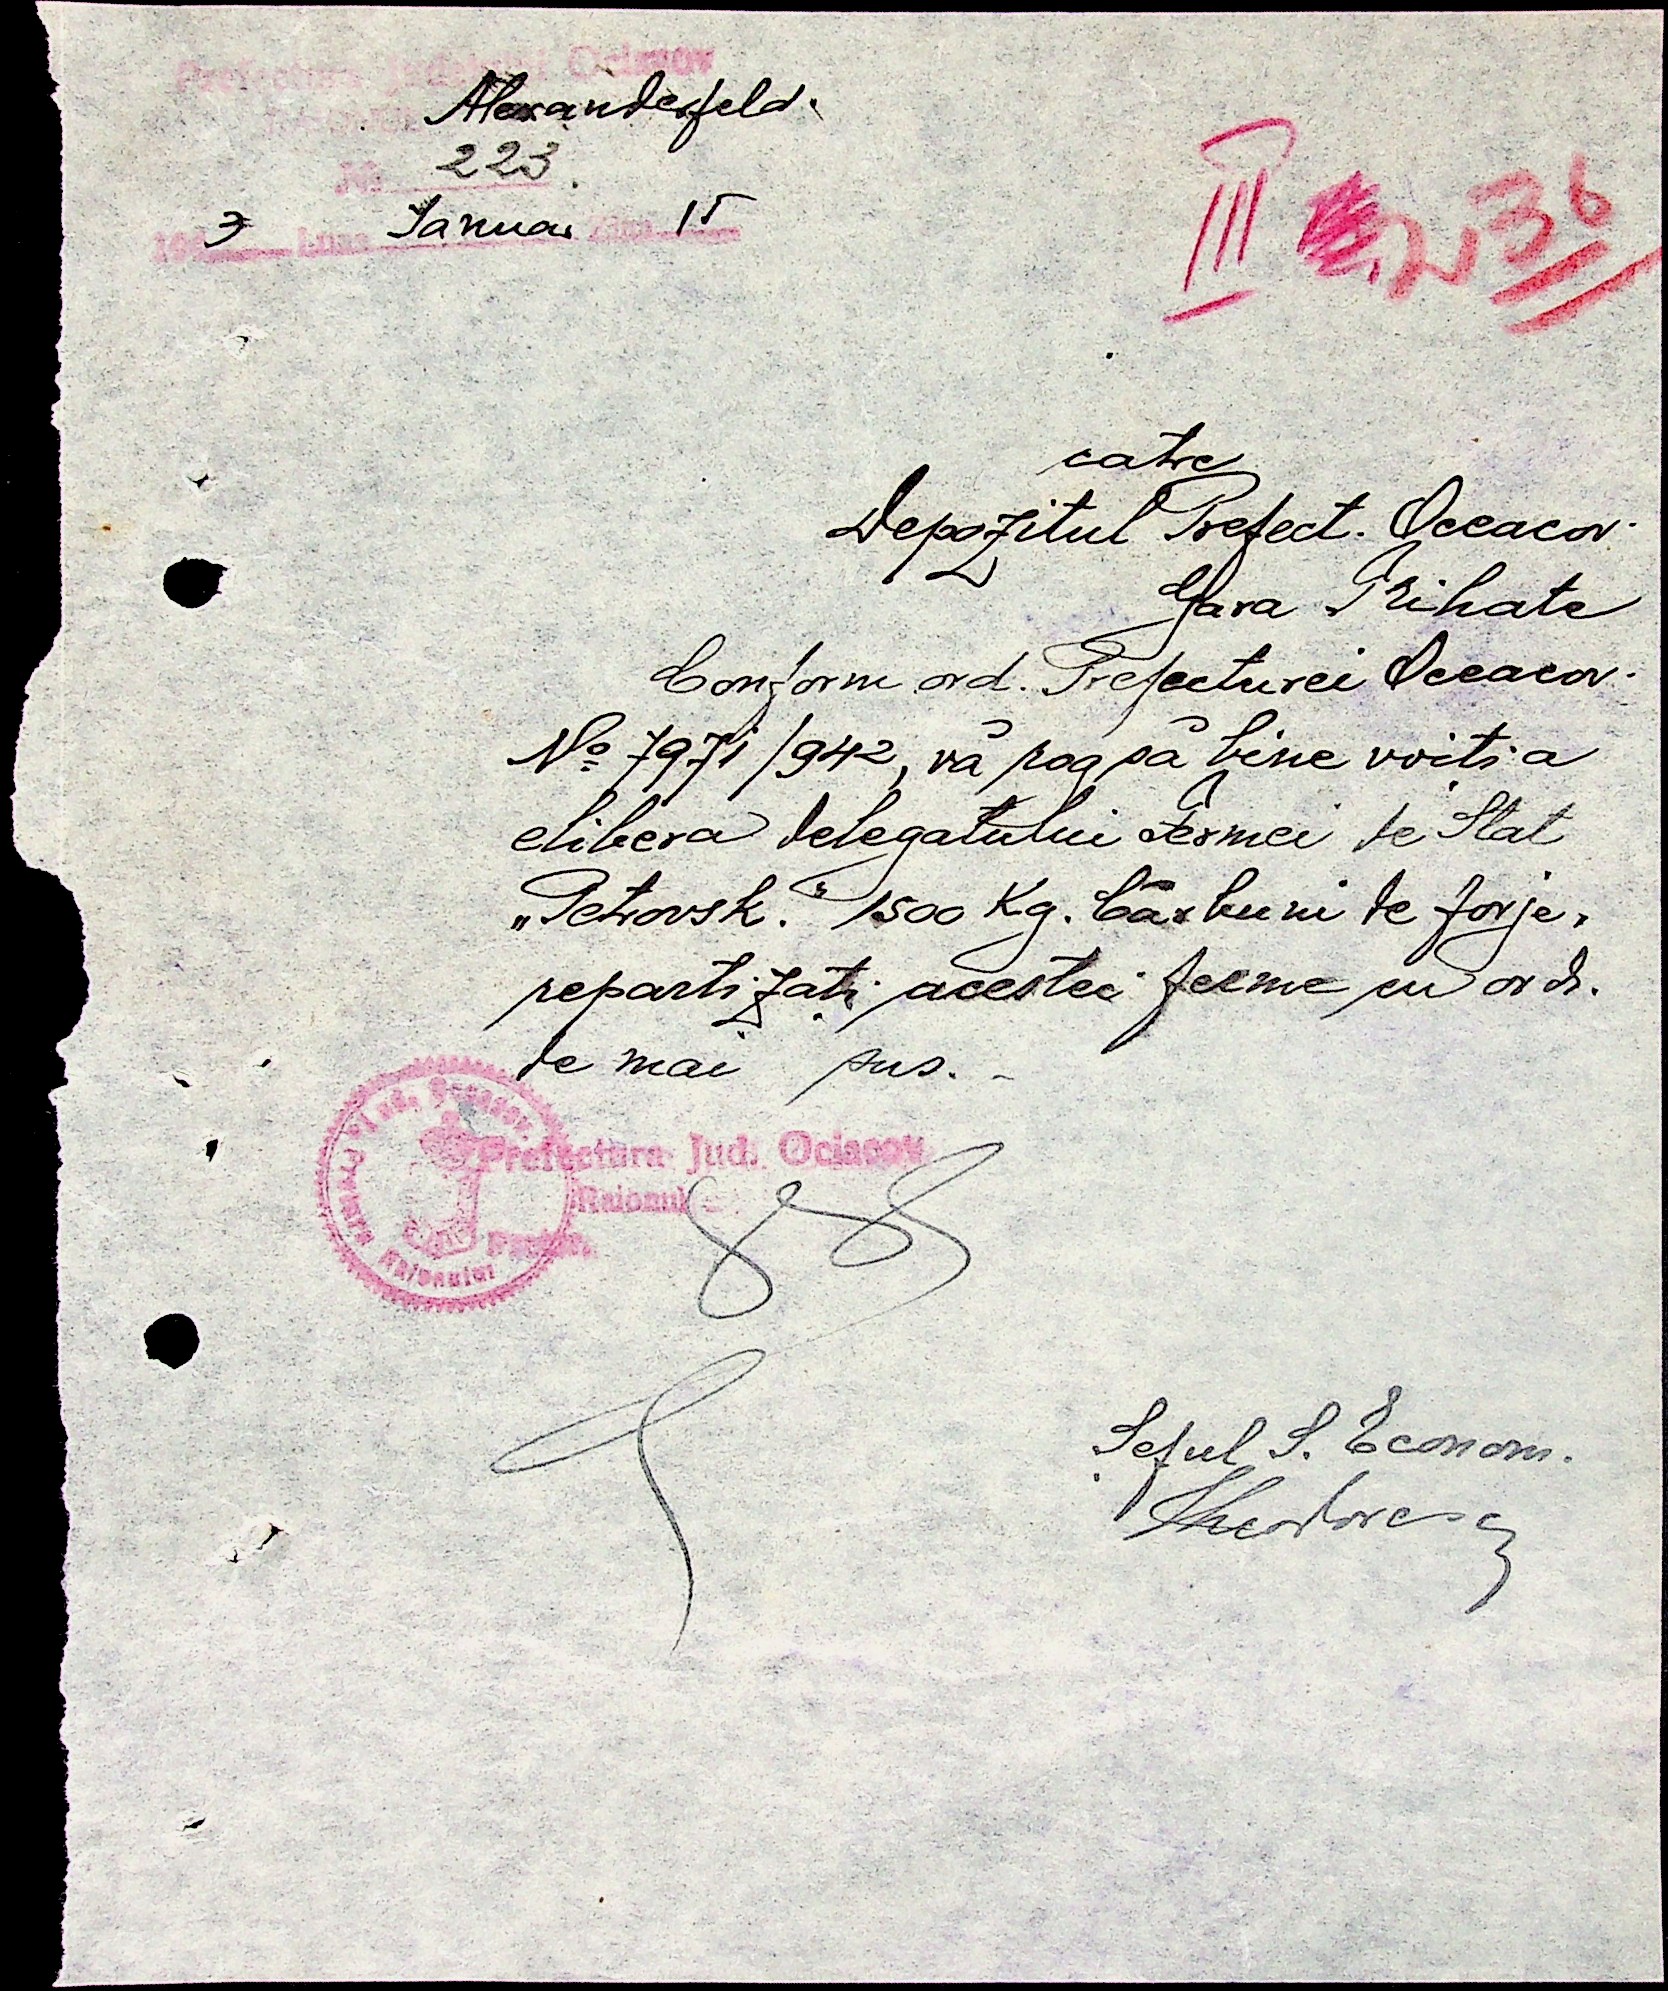 Prefectura Județului Ociacov
Alexanderfeld.
No 223.
194 3 Luna Januar Ziua 15
III 36
catre
Depozitul Prefect. Oceacov.
Gara Trihate
Conform ord. Prefecturei Oceacov.
No 7971/942, vă rog să bine voiți a
elibera delegatului Fermei de Stat
„Petrovsk." 1500 Kg. Cărbuni de forje,
repartizați acestei ferme cu ord.
de mai sus. -
Prefectura Jud. Ociacov
Raionul
Pretor.
Șeful S. Econom.
Theodorescu